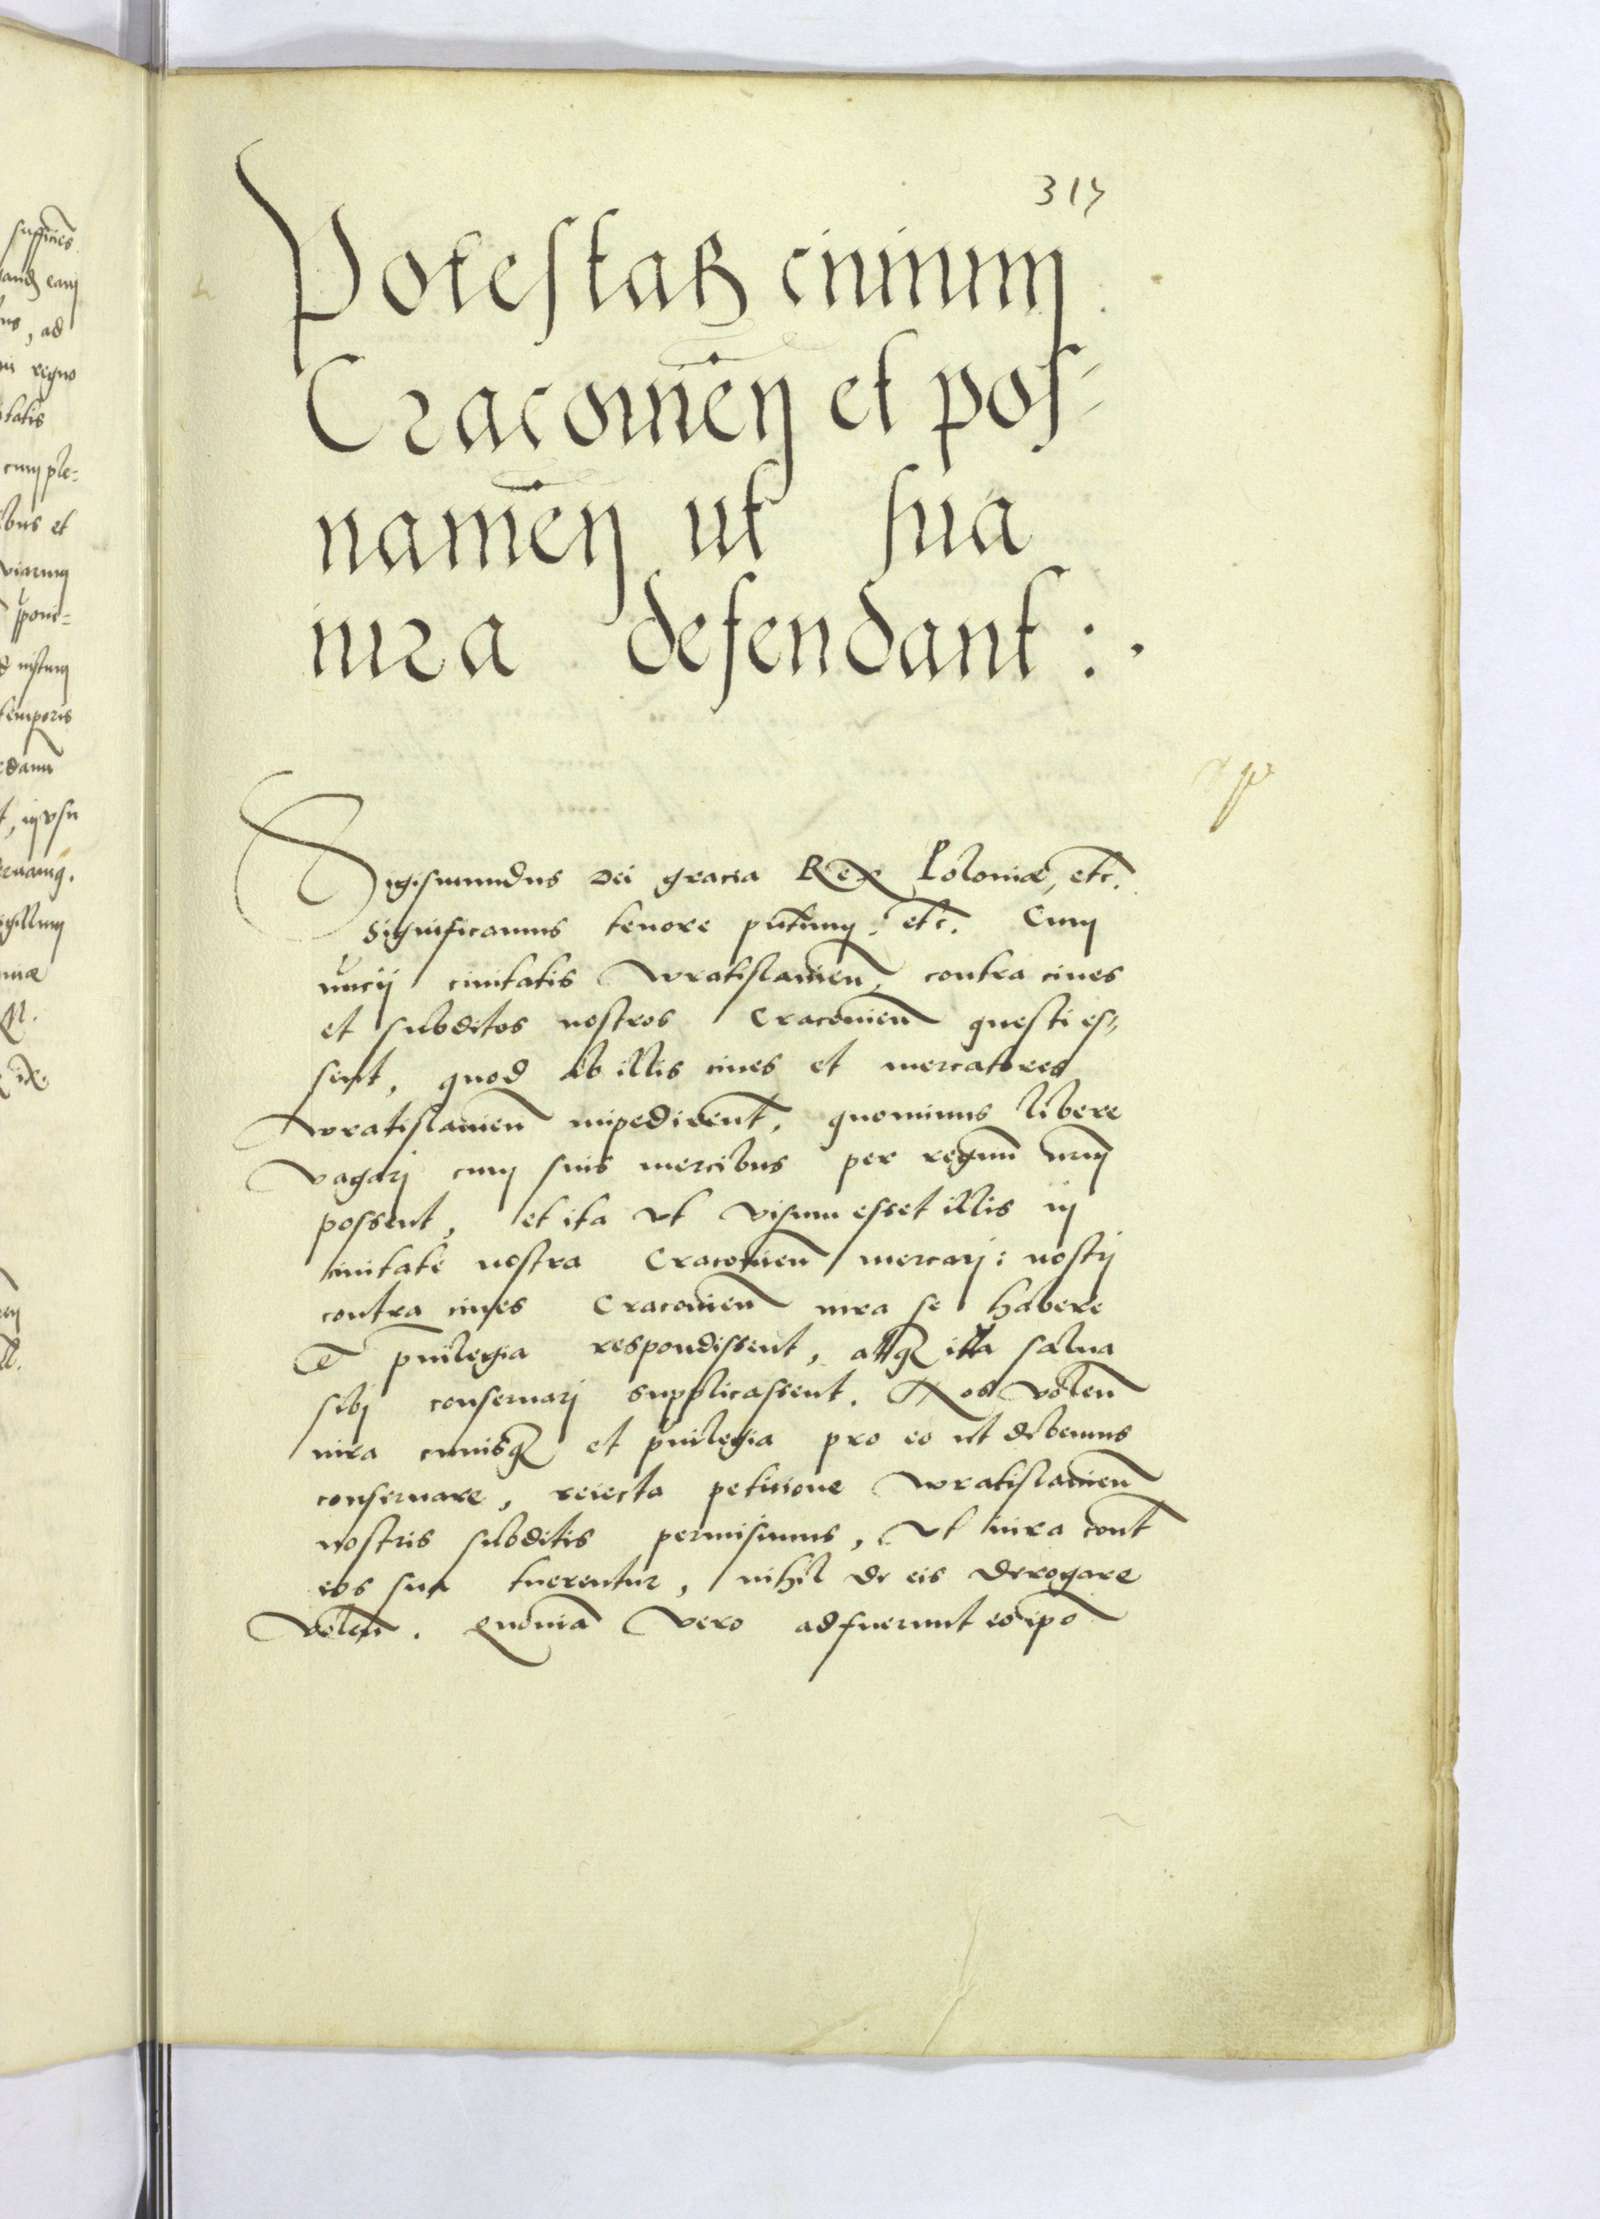 317
Potestas ciuium
Cracouien et pos-
namen ut sua
iura defendant :.
Sigismundus dei gracia Rex Poloniæ, etc.
Significamus tenore pntium. etc. Cum
nuncij ciuitatis Wratislauien, contra ciues
et subditos nostros Cracouien questi es-
sent, quod ab illis ciues et mercatores
Wratislauien impedirent, quominus libere
vagarj cum suis mercibus per regnum nrum
possent, et ita vt visum esset illis in
ciuitate nostra Cracouien mercarj: nostrj
contra ciues Cracouien iura se habere
et priuilegia respondissent, atque illa salua
sibj conseruarj supplicassent. Nos volen
iura cuiusque et priuilegia pro eo ut debemus
conseruare, reiecta peticione Wratislauien
nostris subditis permisimus, vt iura cont
eos sua tuerentur, nihil de eis derogare
volen. Quonia vero adfuerunt eo ipo
sufficies
ad
regno
cum ple-
temporis